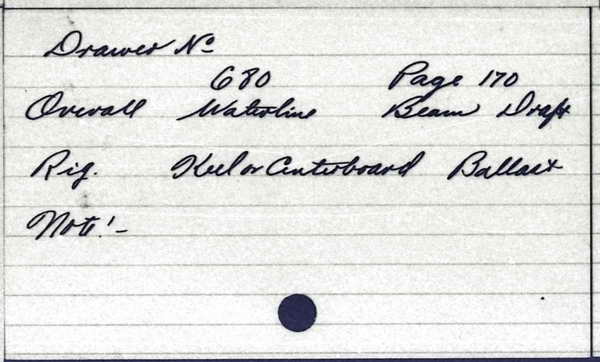 Drawer No
680 Page 170
Overall Waterline Beam Draft
Rig. Keel or Centerboard Ballast
Note!-